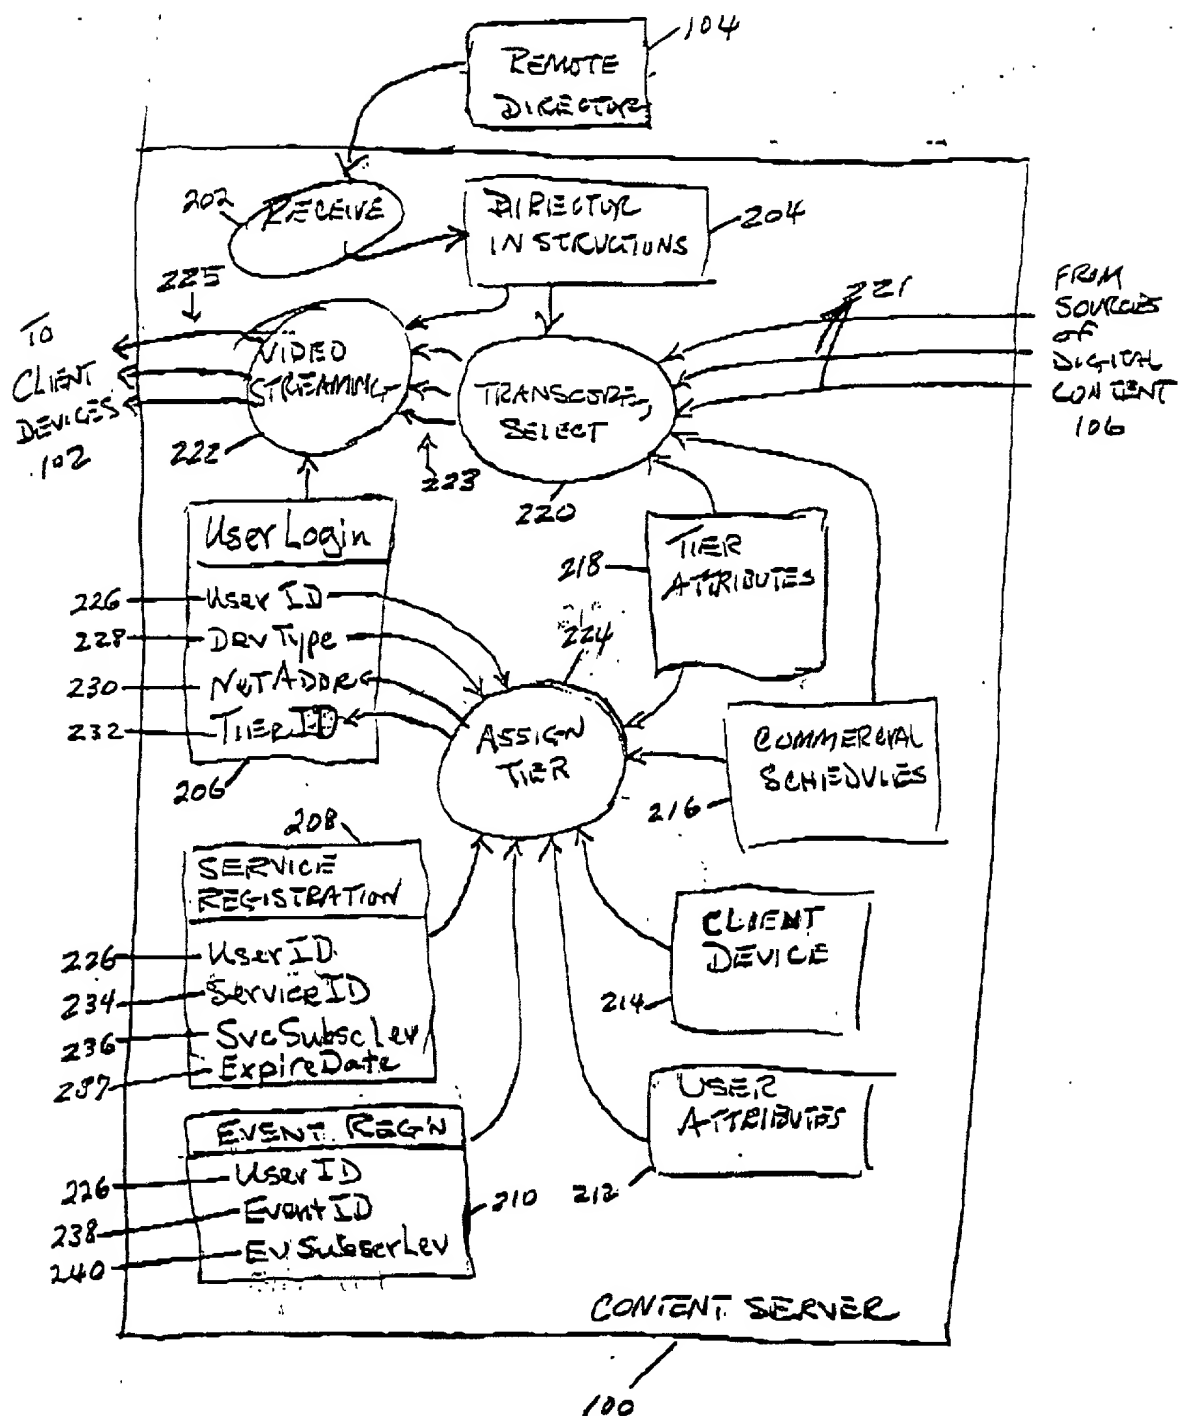 104
REMOTE
DIRECTOR
202
RECEIVE
DIRECTOR
INSTRUCTIONS
204
225
221
FROM
SOURCES
OF
DIGITAL
CONTENT
106
TO
CLIENT
DEVICES
102
VIDEO
STREAMING
222
TRANSCODE,
SELECT
223
220
User Login
226
User ID
228
DevType
230
NetAddr
232
TierID
206
218
TIER
ATTRIBUTES
224
ASSIGN
TIER
COMMERCIAL
SCHEDULES
216
208
SERVICE
REGISTRATION
226
UserID
234
ServiceID
236
SvcSubscLev
237
ExpireDate
CLIENT
DEVICE
214
USER
ATTRIBUTES
212
EVENT REG'N
226
UserID
210
238
EventID
240
EvSubscrLev
CONTENT SERVER
100